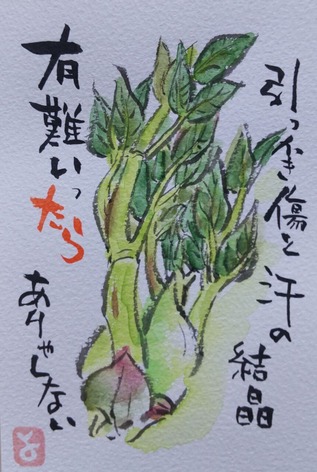 引っかき傷と汗の
結晶
有難いっ
たら
ありゃしない
と